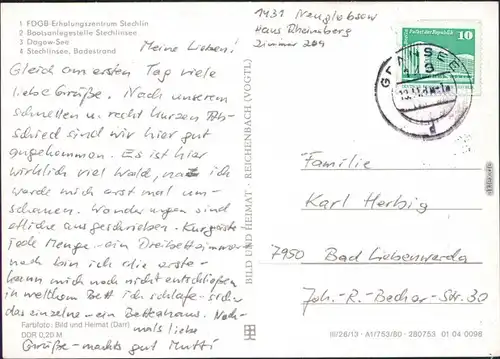 1 FDGB-Erholungszentrum Stechlin
2 Bootsanlegestelle Stechlinsee
3 Dagow-See
4 Stechlinsee, Badestrand
Meine Lieben!
Gleich am ersten Tag viele
liebe Grüße. Nach unserem
schnellen u. recht kurzen Ab-
schied sind wir hier gut
angekommen. Es ist hier
wirklich viel Wald, na ich
werde mich erst mal um-
schauen. Wanderungen sind
etliche ausgeschrieben. Kurgäste
jede Menge - ein Dreibettzimmer
noch bin ich die erste -
kann mich noch nicht entschließen
in welchem Bett ich schlafe - sicher
das einzelne - ein Bettenhaus. Noch-
mals liebe
Grüße - machts gut Mutti
Farbfoto: Bild und Heimat (Darr)
DDR 0,20 M
BILD UND HEIMAT · REICHENBACH (VOGTL)
1431 Neuglobsow
Haus Rheinsberg
Zimmer 204
Palast der Republik
10
GRANSEE
Familie
Karl Herbig
7950 Bad Liebenwerda
Joh.-R.-Becher-Str. 30
III/26/13 · A1/753/80 · 280753 01 04 0096